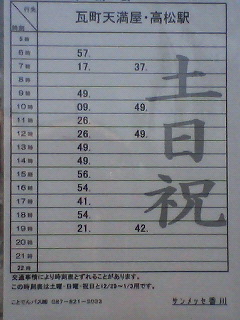 行先
時刻
瓦町天満屋・高松駅
土日祝
5時
6時 57.
7時 17. 37.
8時
9時 49.
10時 09. 49.
11時 26.
12時 26. 49.
13時 49.
14時 49.
15時 56.
16時 54.
17時 41.
18時 54.
19時 21. 42.
20時
21時
22時
交通事情により時刻表とずれることがあります。
この時刻表は土曜・日曜・祝日と12/29～1/3用です。
ことでんバス㈱ 087-821-3033
サンメッセ香川